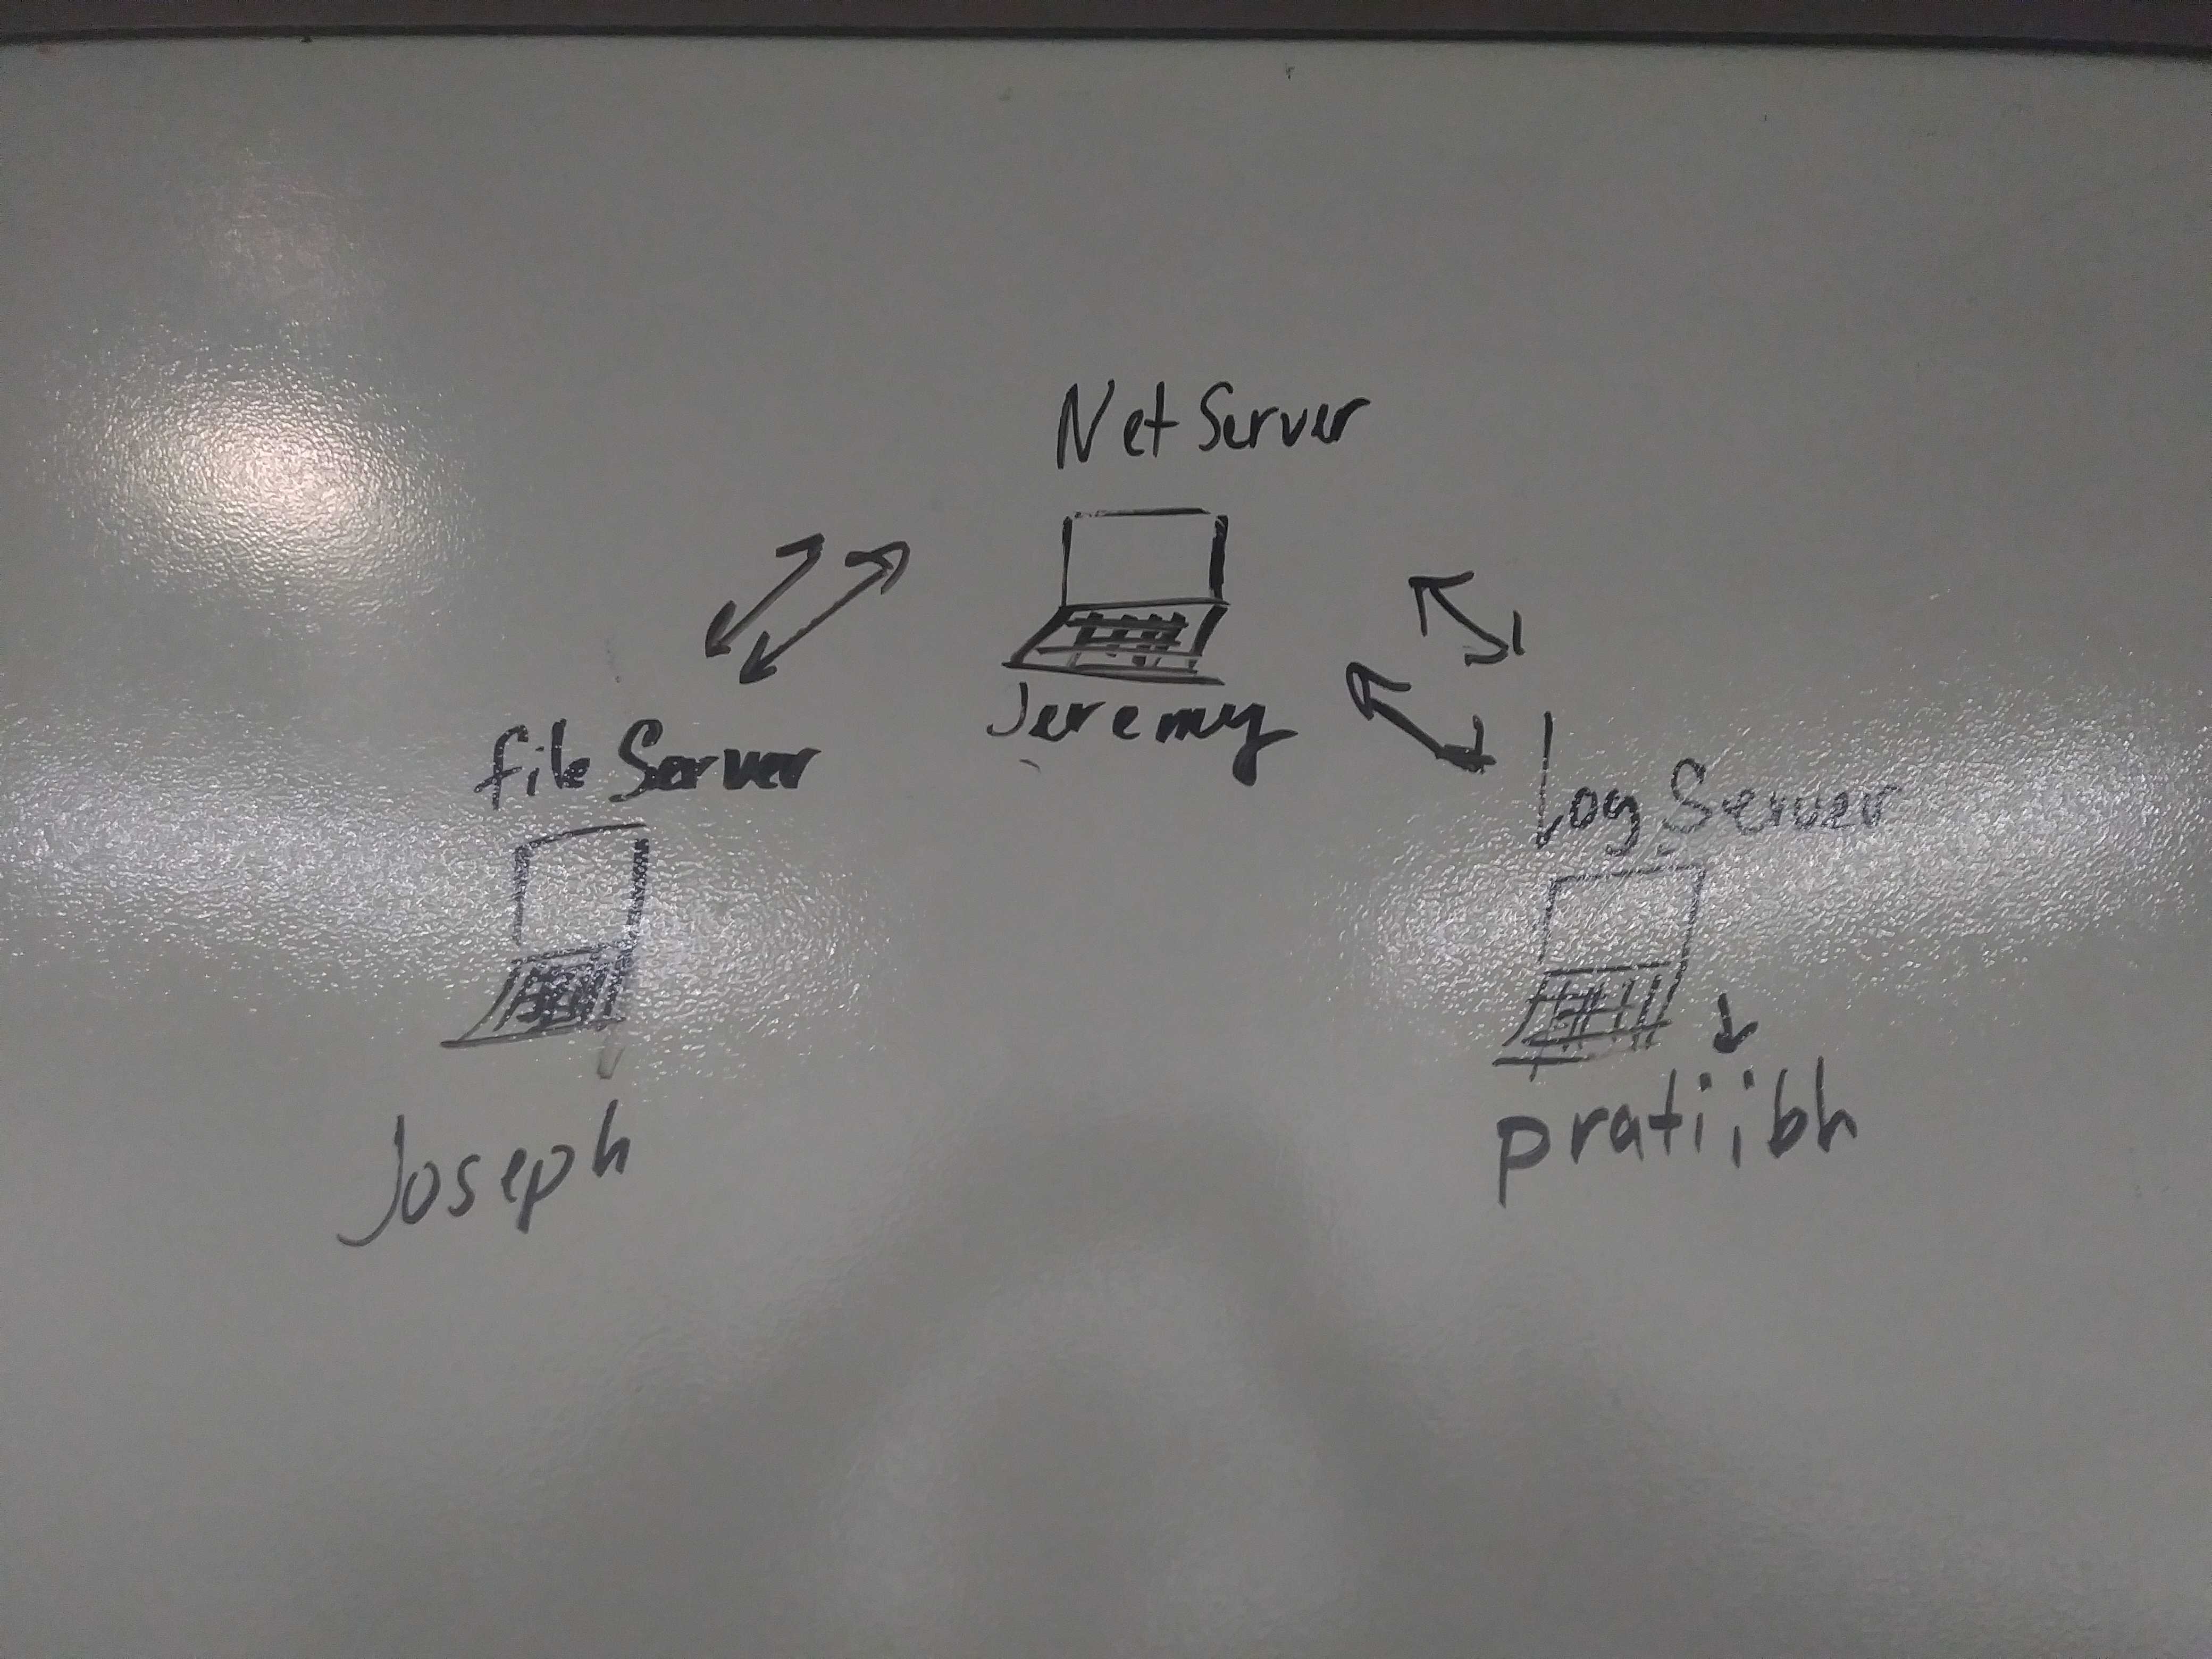 Net Server
Jeremy
file Server
Joseph
Log Server
pratiibh